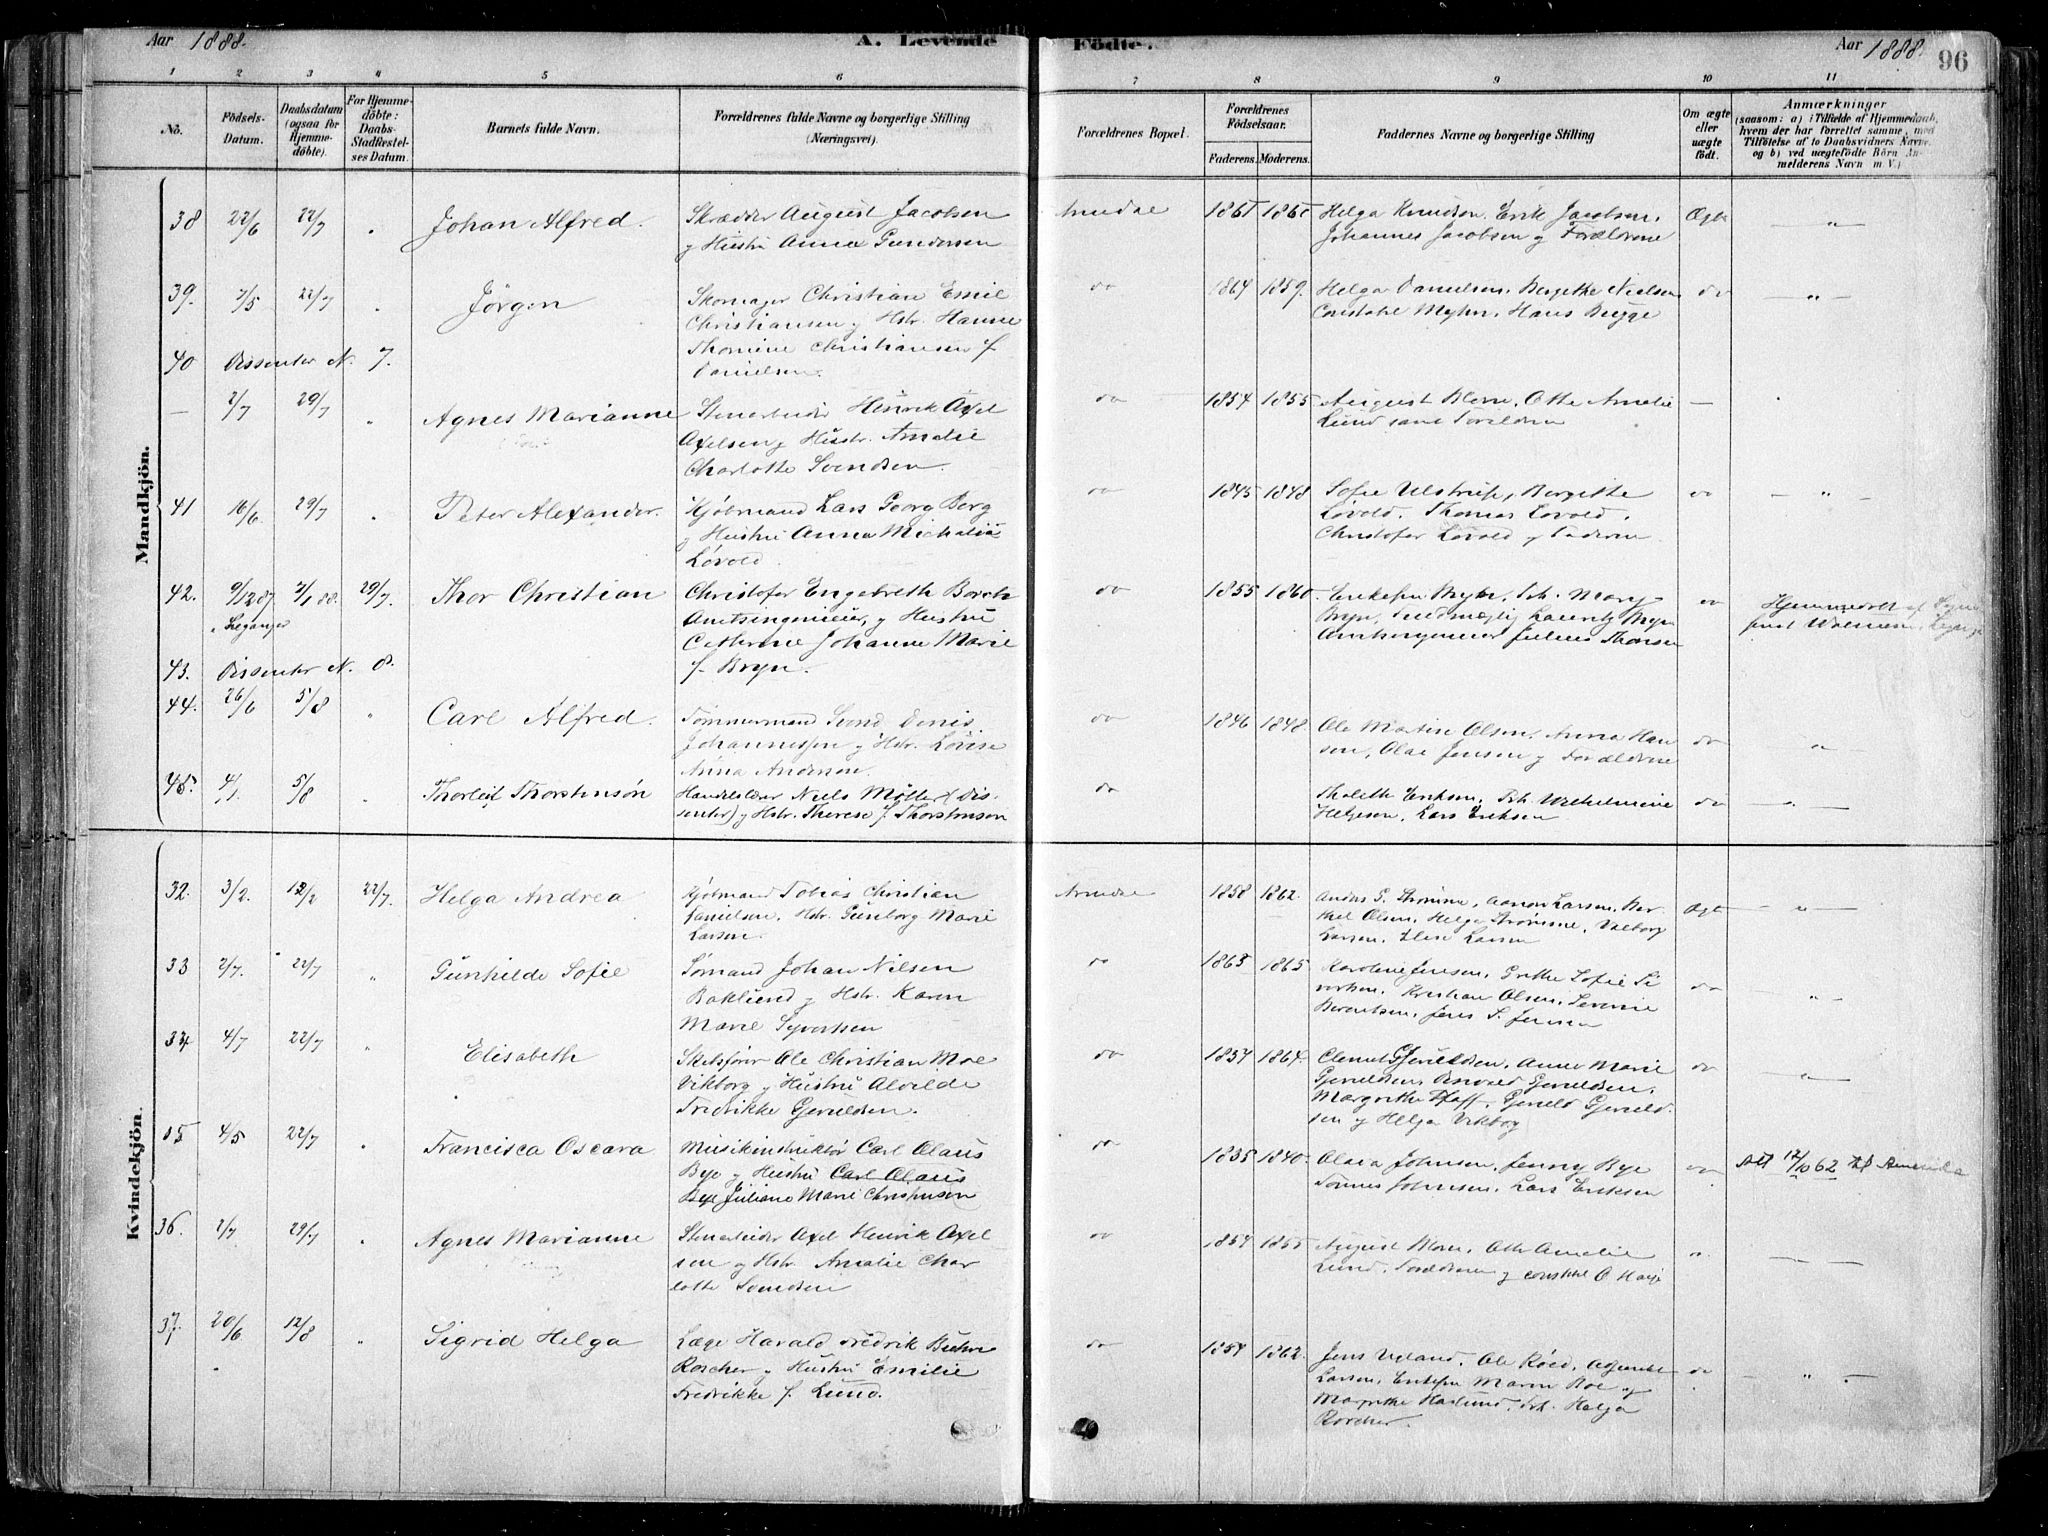 Aar 1888.
A. Levende
Födte.
Aar 1888.
96
1 2 3 4 5 6 7 8 9 10 11
No.
Födsels-
Datum.
Daabsdatum
(ogsaa for
Hjemme-
döbte).
For Hjemme-
döbte:
Daabs-
Stadfæstel-
ses Datum.
Barnets fulde Navn.
Forældrenes fulde Navne og borgerlige Stilling
(Næringsvei).
Forældrenes Bopæl.
Forældrenes
Födselsaar.
Faderens. Moderens.
Faddernes Navne og borgerlige Stilling
Om ægte
eller
uægte
födt.
Anmærkninger
(saasom: a) i Tilfælde af Hjemmedaab,
hvem der har forrettet samme, med
Tilföielse af to Daabsvidners Navne,
og b) ved uægtefödte Börn An-
melderens Navn m. V.)
Mandkjön.
38 22/6 22/7 " Johan Alfred.
Skrædder August Jacobsen
og Hustru Anna Gundersen
Arendal 1861 1865
Helga Knudsen, Erik Jacobsen,
Johannes Jacobsen og Forældrene
Ægte "
39. 7/5 22/7 " Jörgen
Skomager Christian Emil
Christiansen og Hstr. Hanne
Thomine Christiansen f.
Danielsen.
do 1864 1859.
Helga Danielsen, Bergithe Nielsen
Constabel Myhn, Hans Bugge
do "
40 Dissenter N. 7.
— 2/7 29/7 " Agnes Marianne
Stenarbeider Henrik Axel
Axelsen og Hustr. Amalie
Charlotte Svendsen.
do 1854 1855
August Olsen, Otto Amalie
Lund samt Forældrene
—
41 16/6 29/7 " Peter Alexander.
Kjöbmand Lars Georg Berg
og Hustru Anna Michaline
Lövold.
do 1845 1848
Sofie Ulstrup, Bergithe
Lövold, Thomas Lövold,
Christofer Lövold og Faderen
do "
42. 9/12 87. 7/1 88. 29/7. Thor Christian
i Leganger
Christofer Engebreth Borch
Amtsingeniör, og Hustru
Cathrine Johanne Marie
f. Bryn.
do 1855 1860.
Enkefru Bryn, Frk. Mary
Bryn, Lauritz Bryn
Amtsingeniör Julius Thomsen
do
Hjemmedöbt af Sogne-
43. Dissenter N. 8.
44. 26/6 5/8 " Carl Alfred.
Tömmermand Svend Denis
Johannessen og Hstr. Lovise
Anna Andersen.
do 1846 1848.
Ole Martin Olsen, Anna Han-
sen, Olai Jensen og Forældrene
do "
45. 4/1. 5/8 " Thorleif Thorstensön
Handelslærer Niels Möller (Dis-
senter) og Hstr. Therese f. Thorstenson
do
Thalette Eriksen, Frk. Wilhelmine
Helgesen, Lars Eriksen
do "
Kvindekjön.
32. 3/2. 12/2 22/7. Helga Andrea
Kjöbmand Tobias Christian
Danielsen, Hstr. Gunborg Marie
Larsen.
Arendal 1858 1862.
Anders G. Strömme, Aanon Larsen, Ber-
thel Olsen, Helga Strömme, Valborg
Larsen, Elise Larsen
Ægte "
33 2/7. 22/7 " Gunhilde Sofie
Sömand Johan Nilsen
Baklund og Hstr. Karen
Marie Syvertsen
do 1863 1865
Karoline Jensen, Grethe Sofie Si-
vertsen, Kristian Olsen, Severine
Berentsen, Jens S. Jensen
do "
34 4/7 22/7 " Elisabeth
Skibsförer Ole Christian Moe
Vikborg og Hustru Alvilde
Fredrikke Gjeruldsen.
do 1857 1864.
Clemet Gjeruldsen, Anne Marie
Gjeruldsen, Osvald Gjeruldsen,
Margrethe Pfaff, Gjeruld Gjeruld-
sen og Helga Vikborg
do "
35 4/5 22/7 " Francisca Oscara
Musikinstruktör Carl Olaus
Bye og Hustru Carl Olaus
Bye Juliane Marie Christensen
do 1835 1840.
Olava Johnsen, Jenny Bye
Tönnes Johnsen, Lars Eriksen
do
Att 12/10 62 til Amerika
36. 2/7 29/7 " Agnes Marianne
Stenarbeider Axel Henrik Axel-
sen og Hstr. Amalie Char-
lotte Svendsen
do 1854 1855
August Olsen, Otto Amalie
Lund, Forældrene og
37. 20/6 12/8 " Sigrid Helga
Læge Harald Fredrik Buhn
Roscher og Hustru Emilie
Fredrikke f. Lund.
do 1854 1862.
Jens Ugland, Ole Röed, Adjunkt
Larsen, Enkefru Maren Boe og
Margrethe Haslund, Frk. Helga
Roscher.
do "